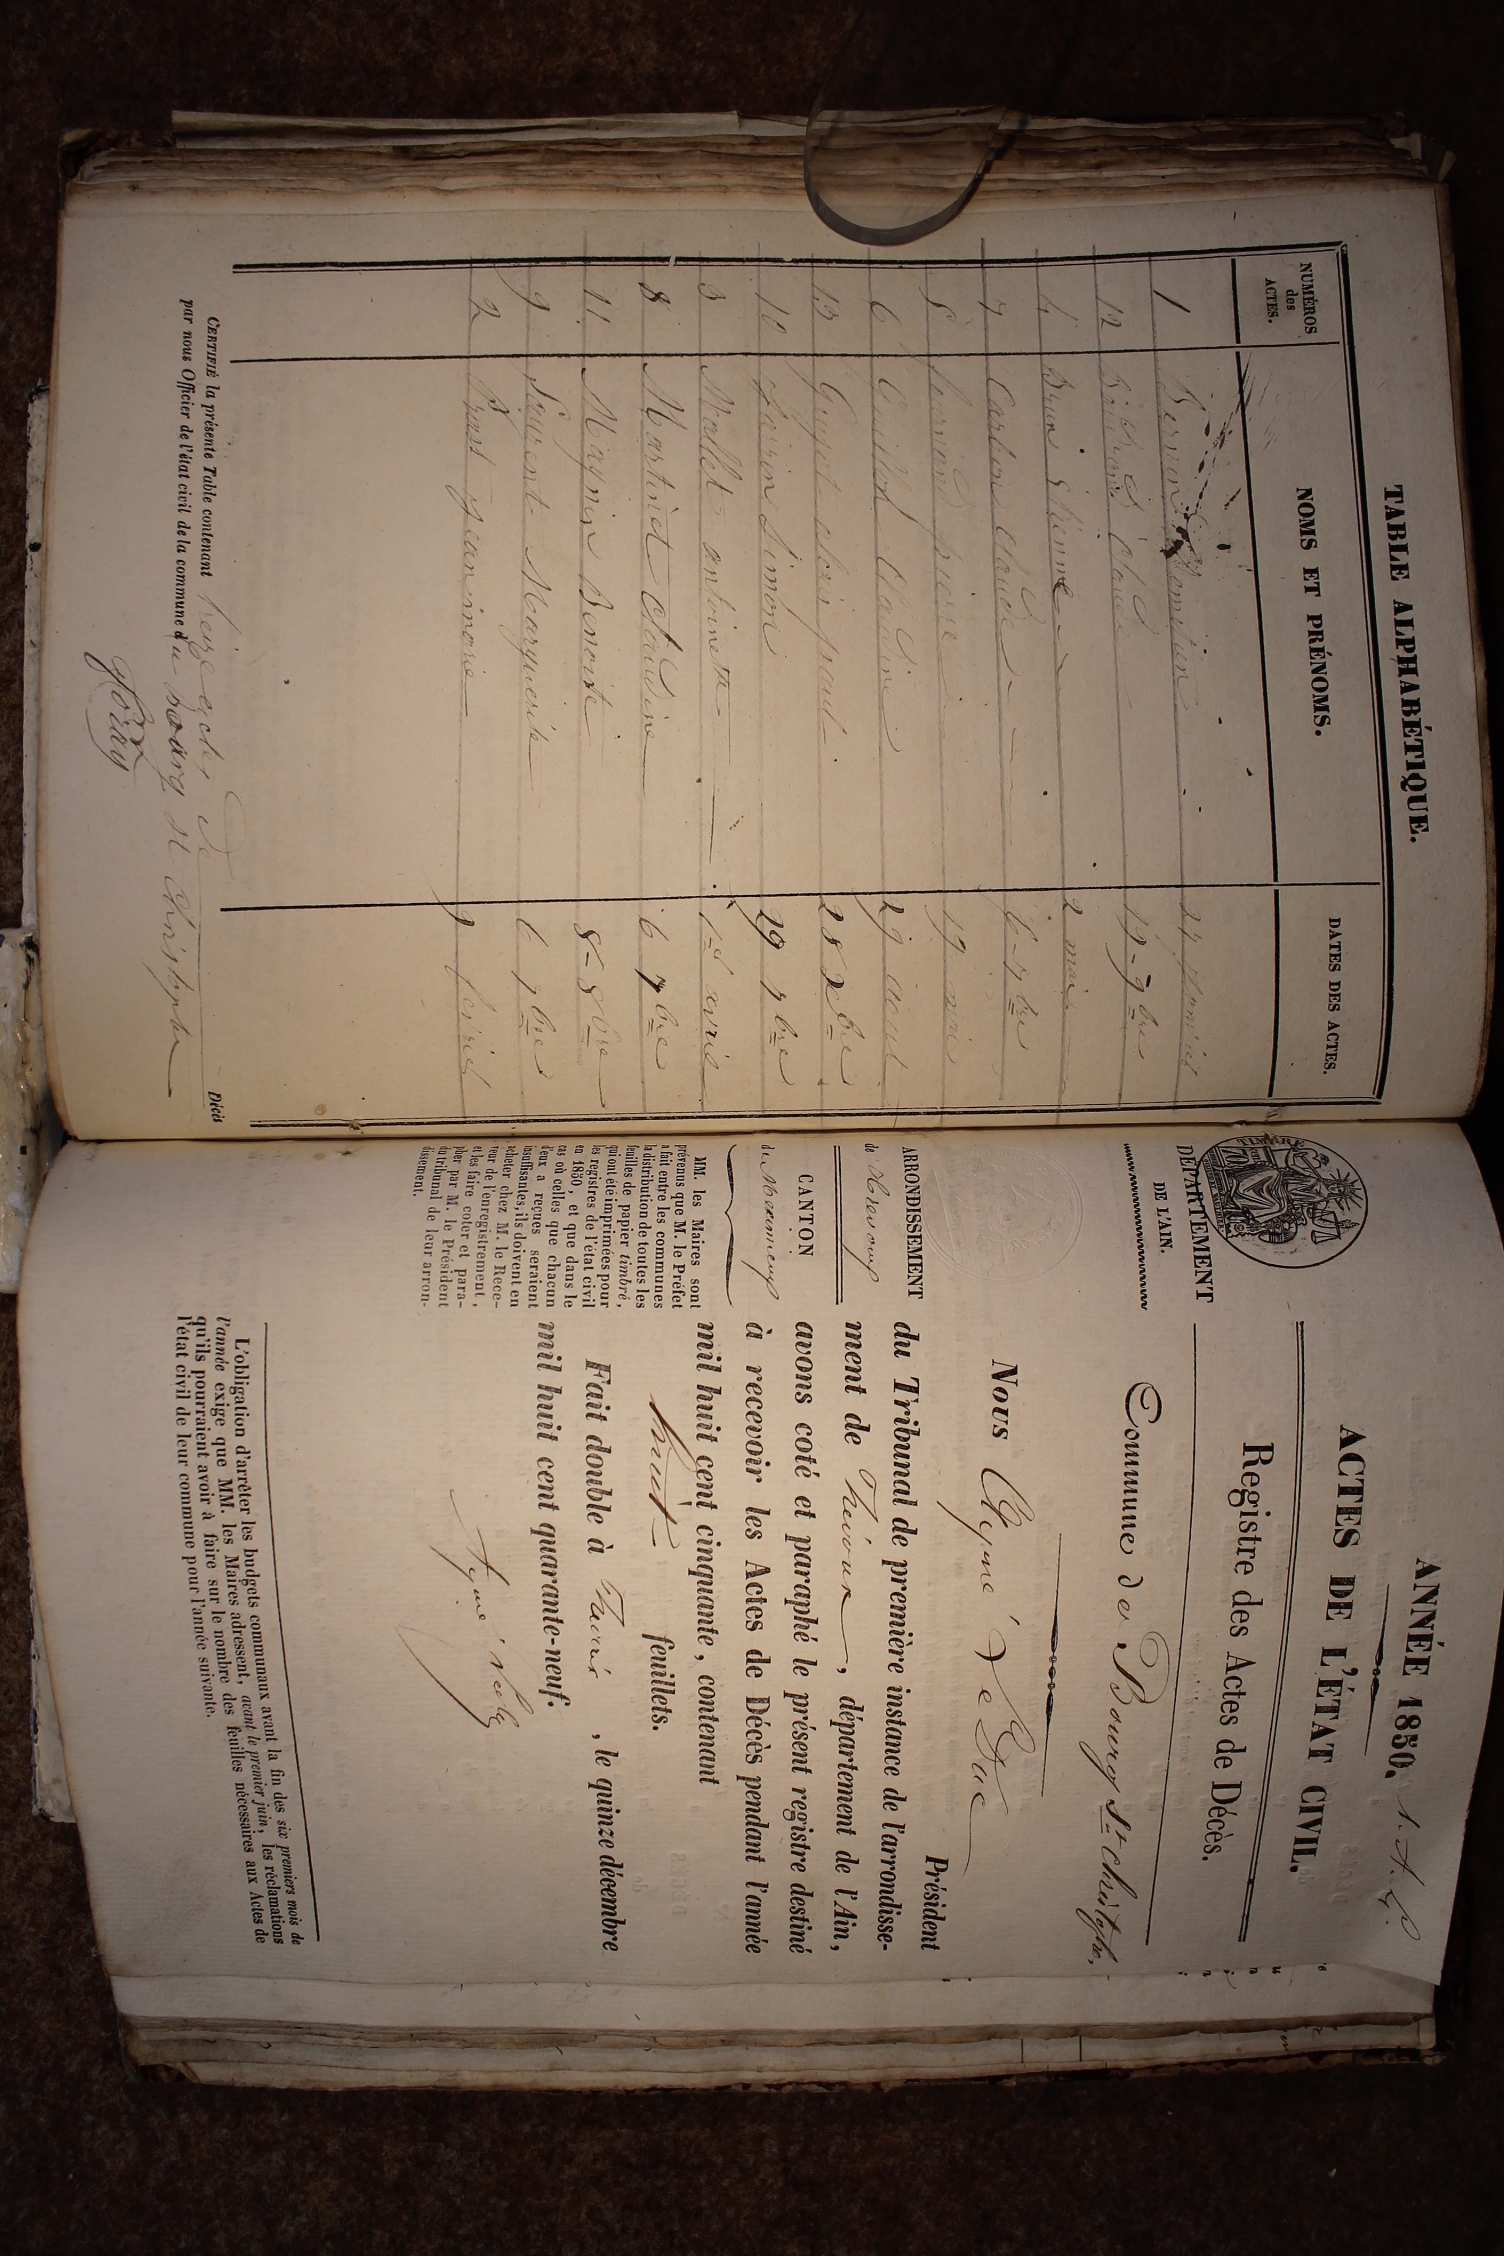 TABLE ALPHABÉTIQUE.
NUMÉROS des ACTES.
NOMS ET PRÉNOMS.
DATES DES ACTES.
1
12 Claude 19 - 9bre
4 Brun Etienne 2 mai
7 Claude 6 - 7bre
5 pierre 19 avril
6 Claudine 29 aout
13 Guyot 28 Xbre
10 Simon 29 7bre
3 Mallet antoinette 1er avril
8 Martinet Claudine 6 7bre
11 Magnin Benoite 8 - 8bre
9 Marguerite 6 7bre
2 jean marie 9 fevrier
CERTIFIÉ la présente Table contenant treize actes de
par nous Officier de l'état civil de la commune du bourg st Christophe
Décès
ANNÉE 1850.
ACTES DE L'ÉTAT CIVIL.
Registre des Actes de Décès.
DÉPARTEMENT
DE L'AIN.
TIMBRE
70
Commune de Bourg St Christophe,
ARRONDISSEMENT
de Trevoux
CANTON
de Meximieux
MM. les Maires sont
prévenus que M. le Préfet
a fait entre les communes
la distribution de toutes les
feuilles de papier timbré,
qui ont été imprimées pour
les registres de l'état civil
en 1850, et que dans le
cas où celles que chacun
d'eux a reçues seraient
insuffisantes, ils doivent en
acheter chez M. le Rece-
veur de l'enregistrement,
et les faire coter et para-
pher par M. le Président
du tribunal de leur arron-
dissement.
NOUS Président
du Tribunal de première instance de l'arrondisse-
ment de Trévoux, département de l'Ain,
avons coté et paraphé le présent registre destiné
à recevoir les Actes de Décès pendant l'année
mil huit cent cinquante, contenant
huit feuillets.
Fait double à Trévoux, le quinze décembre
mil huit cent quarante-neuf.
L'obligation d'arrêter les budgets communaux avant la fin des six premiers mois de
l'année exige que MM. les Maires adressent, avant le premier juin, les réclamations
qu'ils pourraient avoir à faire sur le nombre des feuilles nécessaires aux Actes de
l'état civil de leur commune pour l'année suivante.